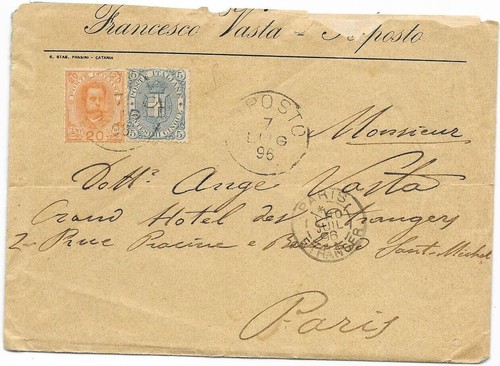 Francesco Vasta - Riposto
E. STAB. PANSINI - CATANIA
20
POSTE ITALIANE
5 5
POSTO
7
LUG
96
Monsieur
Dott. Ange Vasta
Grand Hotel des Etrangers
2 - Rue Racine e Boulevard Saint-Michel
PARIS
JUIL
ETRANGER
Paris